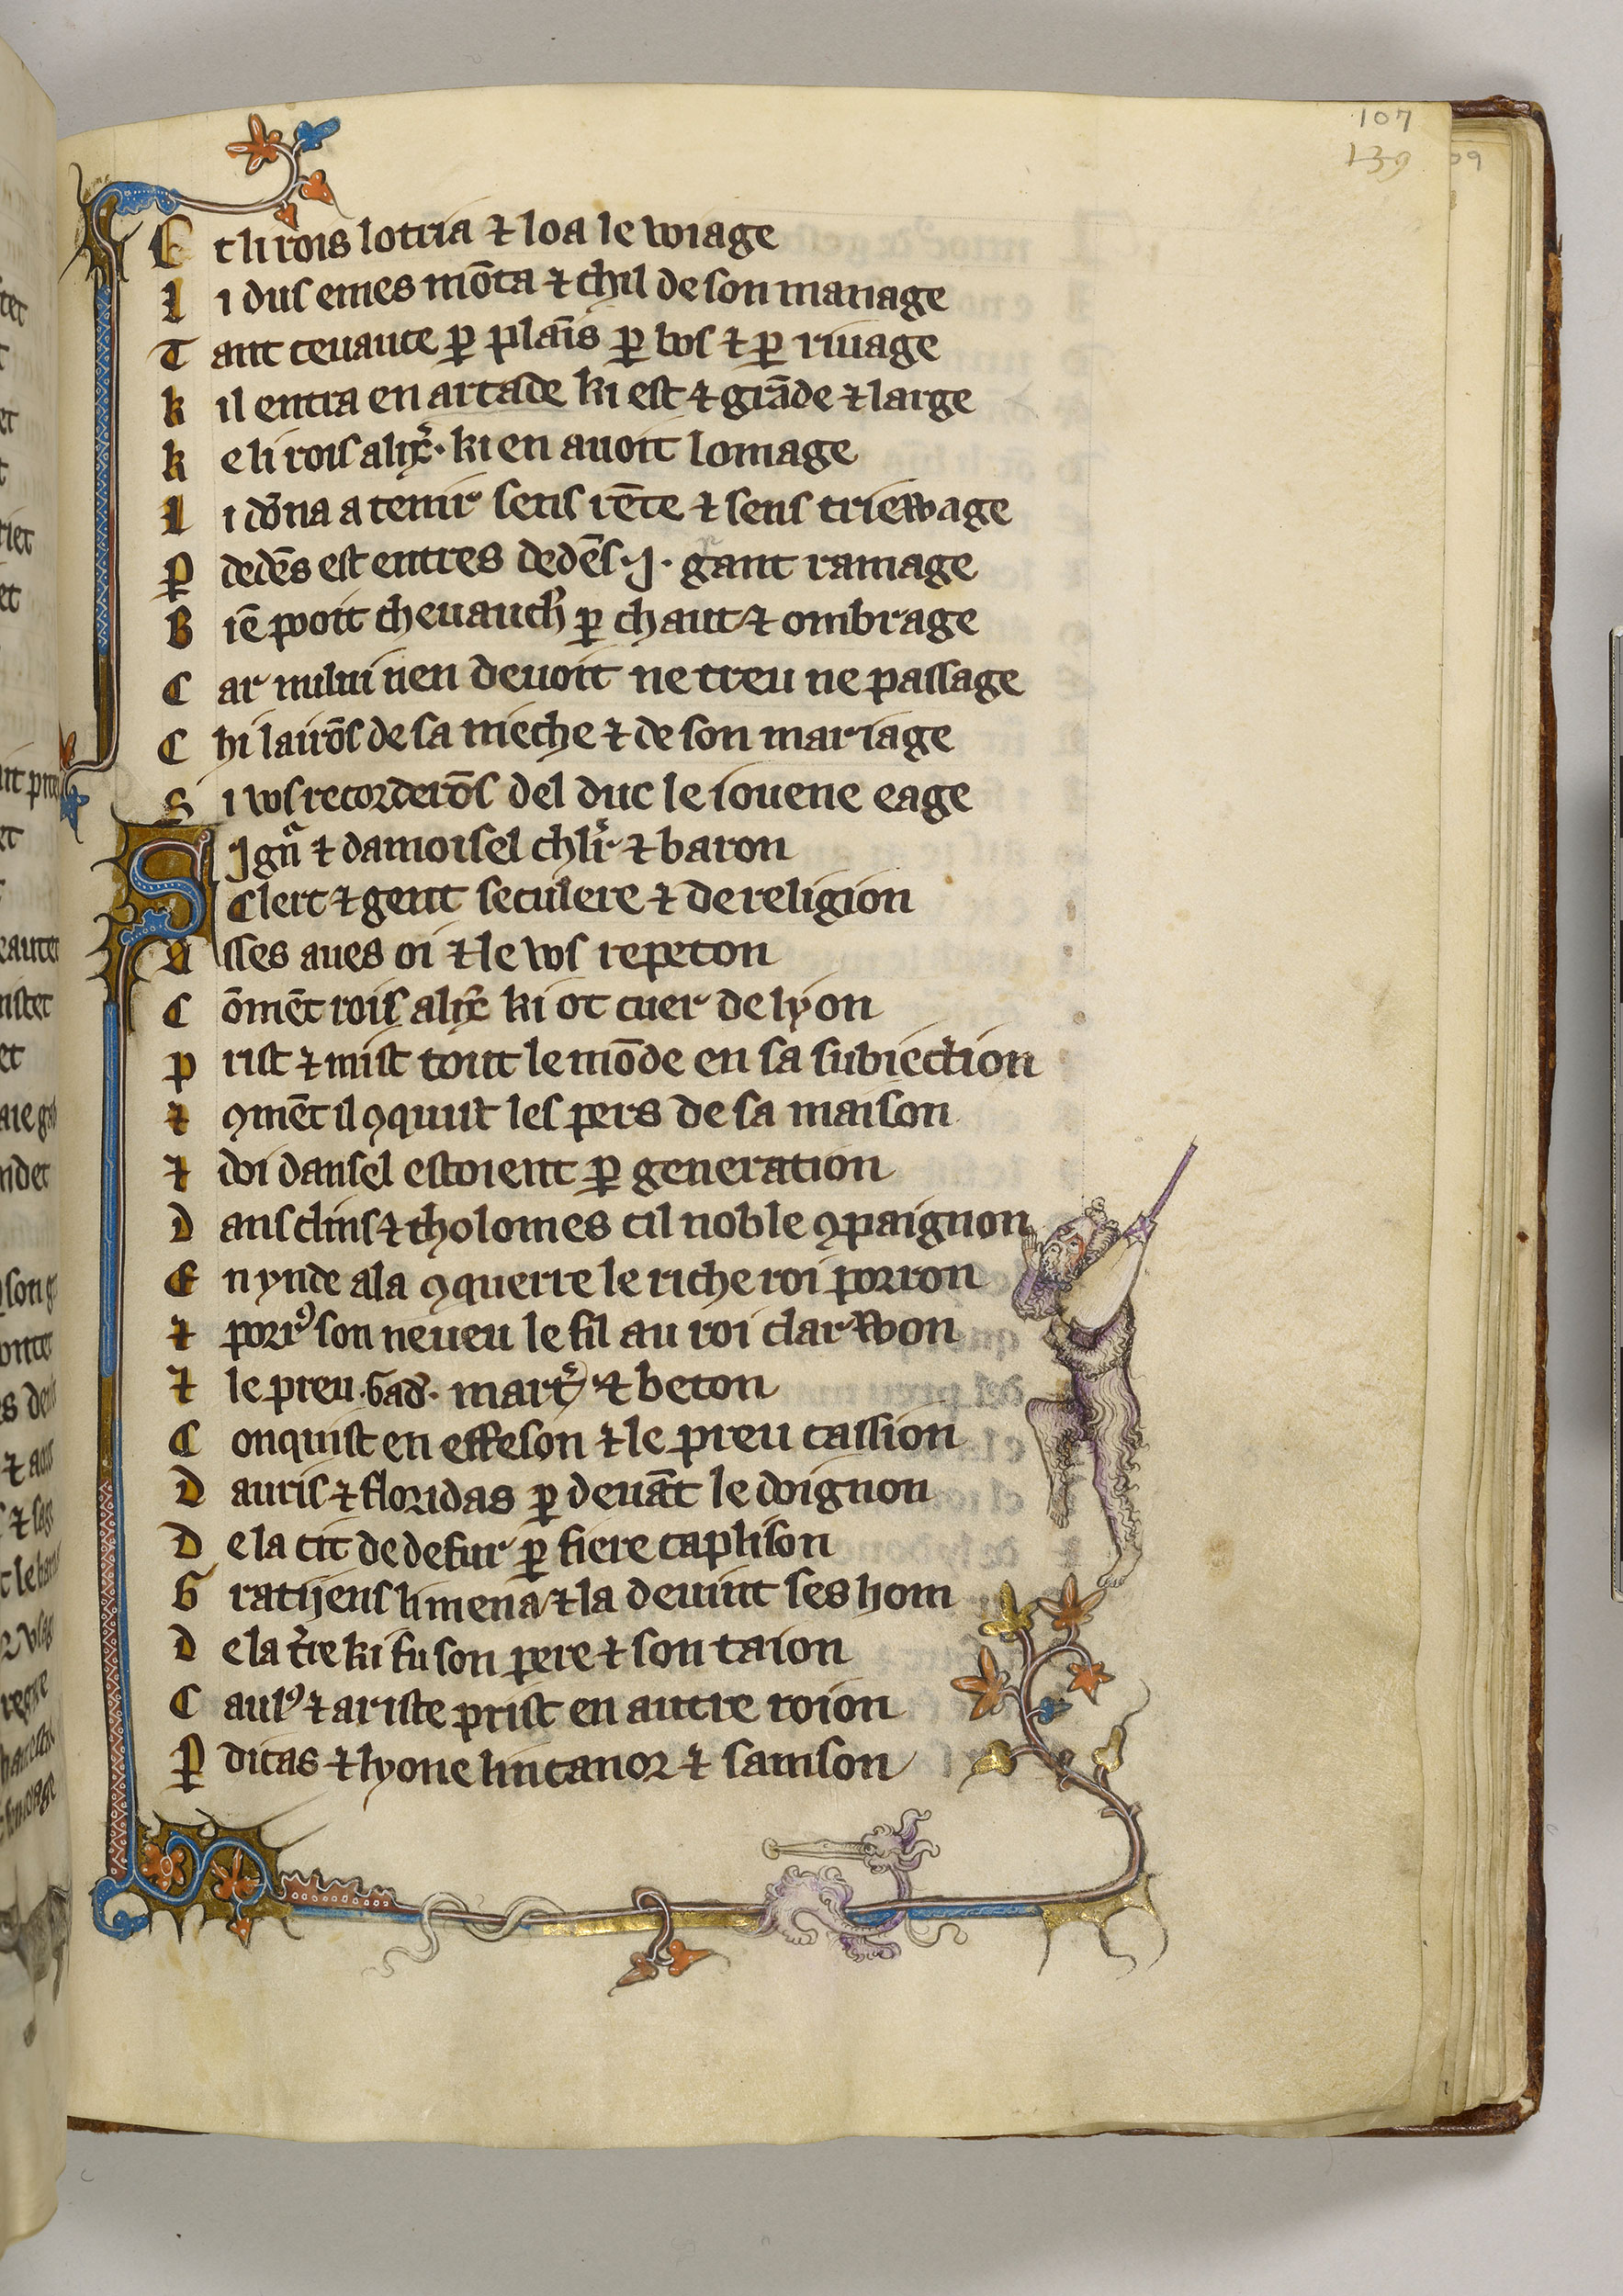 107
139
Et li rois lotria ⁊ loa le voiage
Li dus emes mōta ⁊ chil de son manage
Tant cevauce ꝑ plaīs ꝑ bos ⁊ ꝑ rivage
kil entra en artade ki est ⁊ grāde ⁊ large
ke li rois alix̄. ki en avoit lomage
Li dōna a tenir sens rēte ⁊ sens triewage
ꝑ dedēs est entres dedēs .j. gant ramage
Biē pooit chevauch̄ ꝑ chaut ⁊ ombrage
Car nului nen devoit ne treu ne passage
Chi lairōs de sa nieche ⁊ de son mariage
Si vos recorderōs del duc le iouene eage
SJgn̄ ⁊ damoisel chlr̄ ⁊ baron
Clerc ⁊ gent seculere ⁊ de religion
Asses aves oi ⁊ le vos repeton
Cōmēt rois alix̄ ki ot cuer de lyon
Prist ⁊ mist tout le mōde en sa subiection
⁊ ꝯmēt il ꝯquist les pers de sa maison
⁊ doi dansel estoient ꝑ generation
Dans clins ⁊ tholomes cil noble ꝯpaignon
En ynde ala ꝯquerre le riche roi porron
⁊ porrꝰ son neveu le fil au roi clarwon
⁊ le preu .Gad̄. mart̄ ⁊ beton
Conquist en effeson ⁊ le preu cassion
Dauris ⁊ floridas ꝑ devāt le doignon
De la cit de defur ꝑ fiere caplison
Gratijens li mena ⁊ la devint ses hom
De la t̄re ki fu son pere ⁊ son taion
Caulꝰ ⁊ ariste prist en autre roion
ꝑdicas ⁊ lyone lincanor ⁊ samson